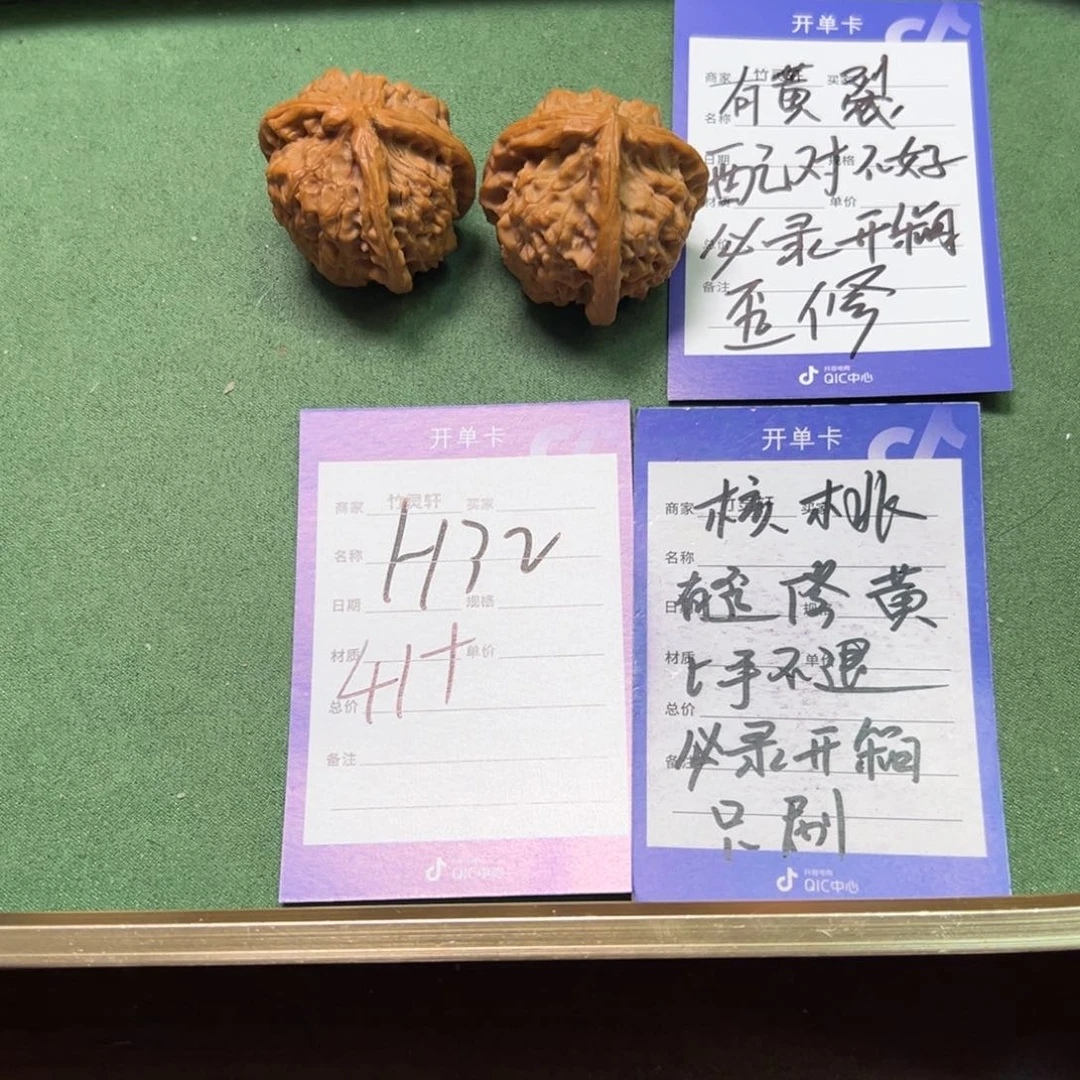 开单卡
商家 竹灵轩 买家
有黄裂
名称
配对不好
日期 规格
材质 单价
必录开箱
总价
备注
歪修
抖音电商
QIC中心
开单卡
商家 竹灵轩 买家
H32
名称
日期 规格
41+
材质 单价
总价
备注
QIC中心
开单卡
商家
核桃
名称
有歪修黄
日期 规格
上手不退
材质 单价
总价
必录开箱
备注
只刷
抖音电商
QIC中心